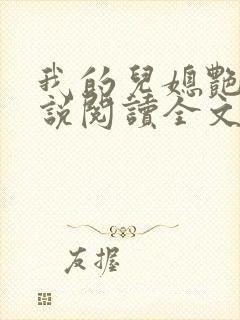 我的兒媳艷
說閱讀全文
友握